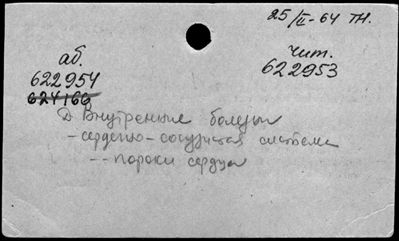 25/II-64 ТН.
аб.
622954
624166
чит.
622953
Д Внутренние болезни
- сердечно-сосудистая система
-- пороки сердца